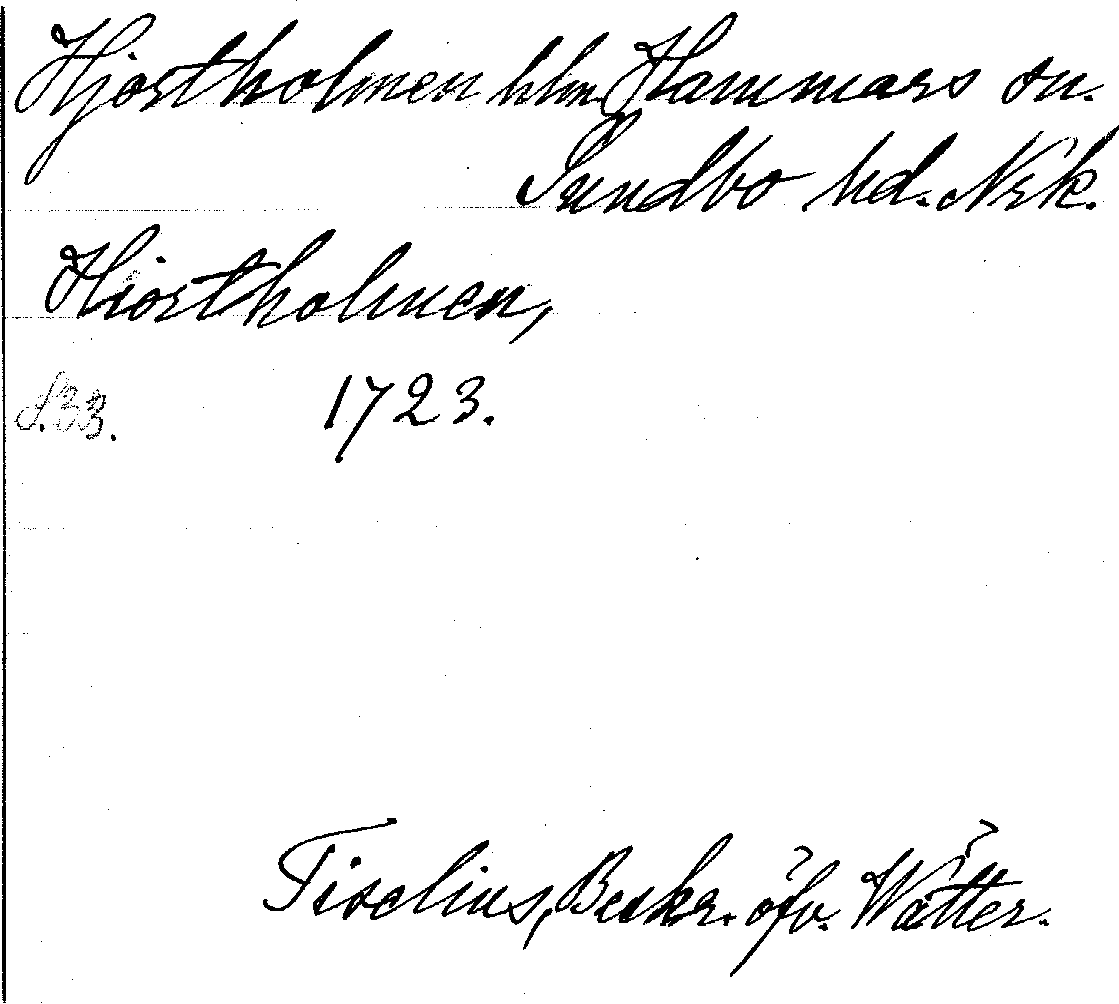 Hjortholmen hlm. Hammars sn.
Sundbo hd. Nrk.
Hiortholmen,
S.33. 1723.
Tiselius, Beskr. öfv. Wätter.